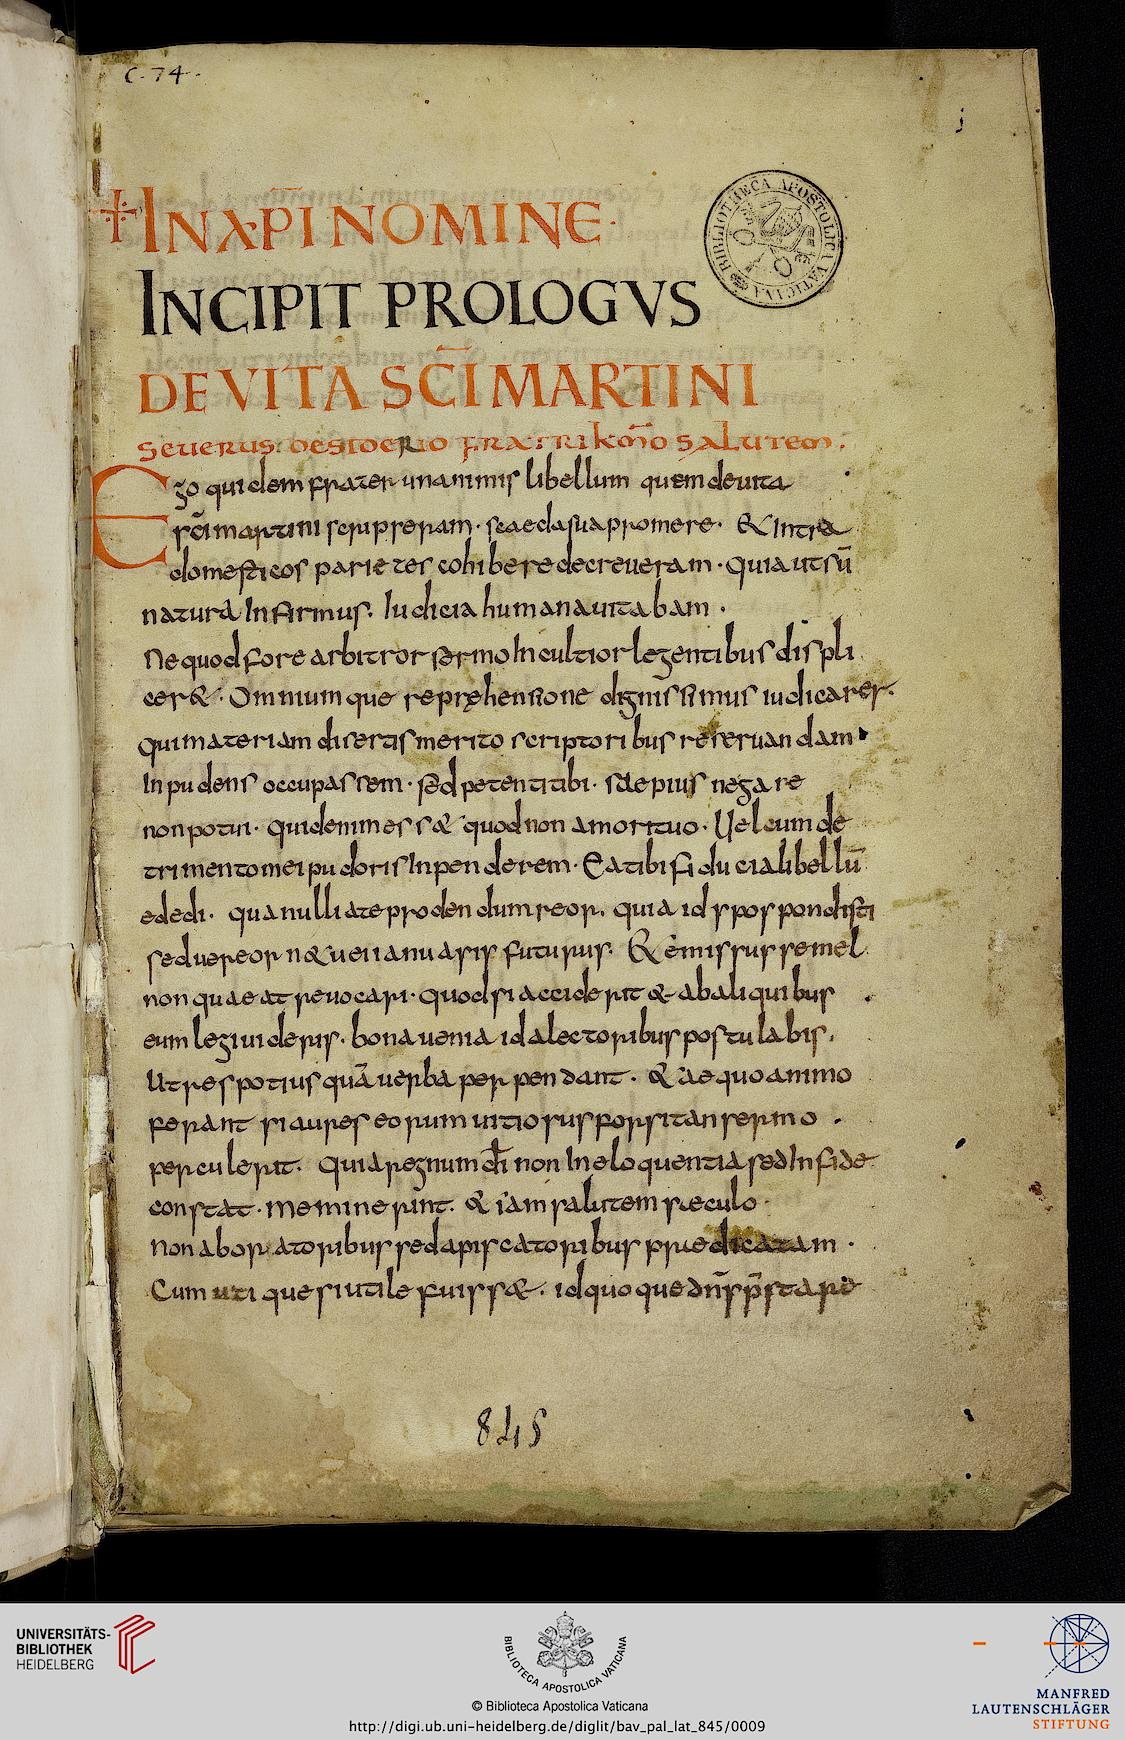 C. 74.
j
BIBLIOTHECA APOSTOLICA VATICANA
✝IN XP̅I NOMINE·
INCIPIT PROLOGVS
DE VITA SC̅I MARTINI
Seuerus desiderio fratri km̅o salutem.
Ego quidem frater unanimis libellum quem deuita
sc̅i martini scripseram· scaeda sua promere· & Intra
domesticos parietes cohibere decreueram· quia utsu̅
natura Infirmus. Iudicia humana uitabam.
Ne quod fore arbitror sermo Incultior legentibus displi
cer&· Omnium que repręhensione dignissimus iudicarer.
qui materiam disertis merito scriptoribus reseruandam
Inpudens occupassem· sed petenti tibi· saepius negare
non potui· quid enim ess& quod non amori tuo· Uel cum de
trimento mei pudoris Inpenderem· Ea tibi fiducia libellu̅
ededi· qua nulli a te prodendum reor. quia id spospondisti
sed uereor n& uei ianua sis futurus. & emissus semel
non quaeat reuocari· quod si acciderit & ab aliquibus
eum legi uideris· bona uenia id a lectoribus postulabis.
Ut res potius qua̅ uerba perpendant· & aequo animo
ferant si aures eorum uitiosus forsitan sermo.
perculerit. quia regnum di̅ non In eloquentia sed In fide
constat· meminerint. & iam salutem saeculo·
non ab oratoribus sed a piscatoribus praedicatam·
Cum utique si utile fuiss&· id quoque dn̅s p̅stare
845
UNIVERSITÄTS-
BIBLIOTHEK
HEIDELBERG
BIBLIOTECA APOSTOLICA VATICANA
© Biblioteca Apostolica Vaticana
http://digi.ub.uni-heidelberg.de/diglit/bav_pal_lat_845/0009
MANFRED
LAUTENSCHLÄGER
STIFTUNG